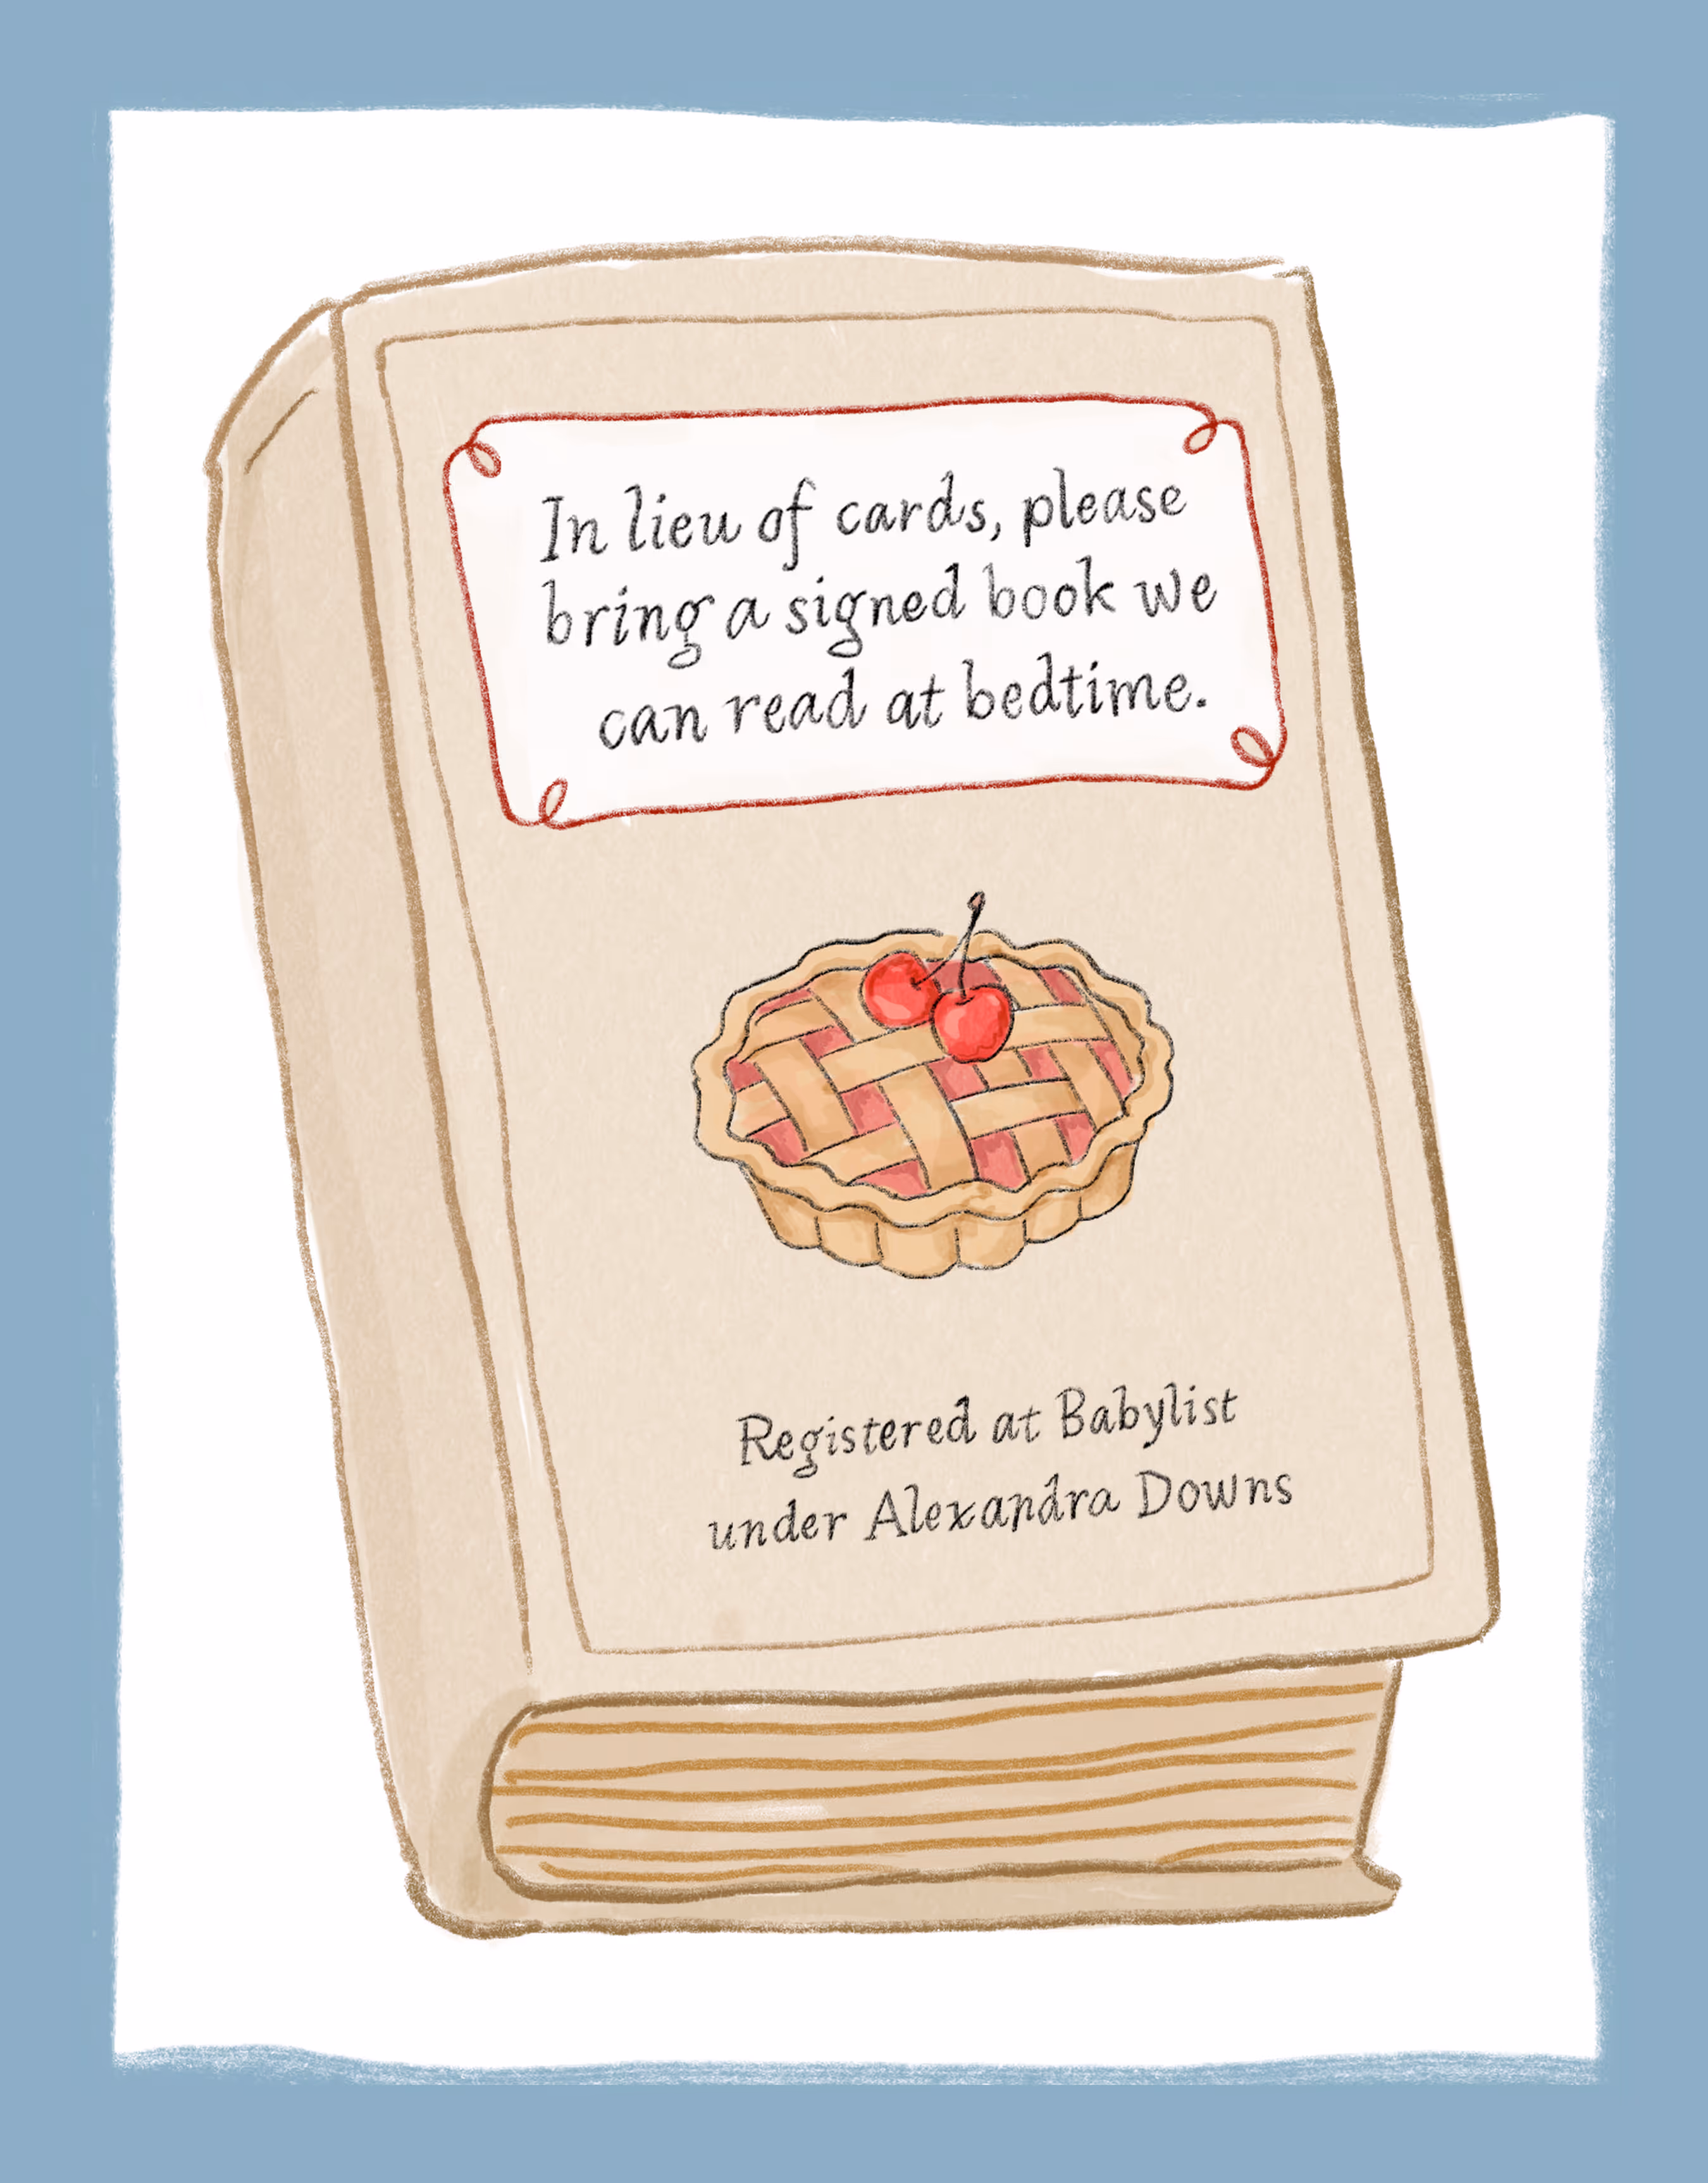 In lieu of cards, please
bring a signed book we
can read at bedtime.
Registered at Babylist
under Alexandra Downs